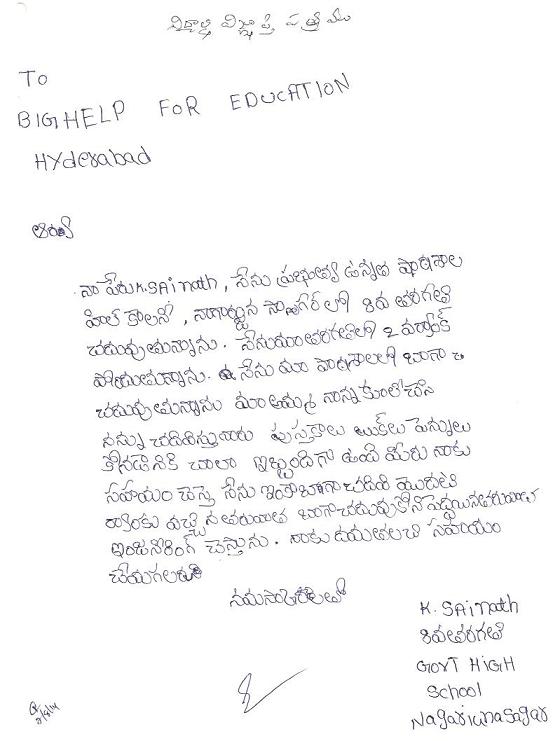 విద్యార్థి విజ్ఞప్తి పత్రము
To
BIGHELP FOR EDUCATION
HYderabad
ఆర్యా
నా పేరు K.SAi nath, నేను ప్రభుత్వ ఉన్నత పాఠశాల
హిల్ కాలని, నాగార్జున సాగర్ లో 8వ తరగతి
చదువుతున్నాను. నేను మా తరగతిలో 2 ర్యాంక్
నేను మా పాఠశాలలో బాగా
చదువుతున్నాను మా అమ్మ నాన్న కూలిచేసి
నన్ను చదివిస్తున్నారు పుస్తకాలు బుక్‌లు పెన్నులు
కోనడానికి చాలా ఇబ్బందిగా ఉంది మీరు నాకు
సహాయం చెస్తె నేను ఇంకాబాగా చదివి మొదటి
ర్యాంకు వచ్చి న తరువాత బాగా చదువుకోని పెద్దయినతరువాత
ఇంజనీరింగ్ చెస్తాను. నాకు దయతలచి సహాయం
చేయగలరు
నమస్కారాలతో
K. SAi nath
8వ తరగతి
GOVT HiGH
School
Nagarjuna Sagar